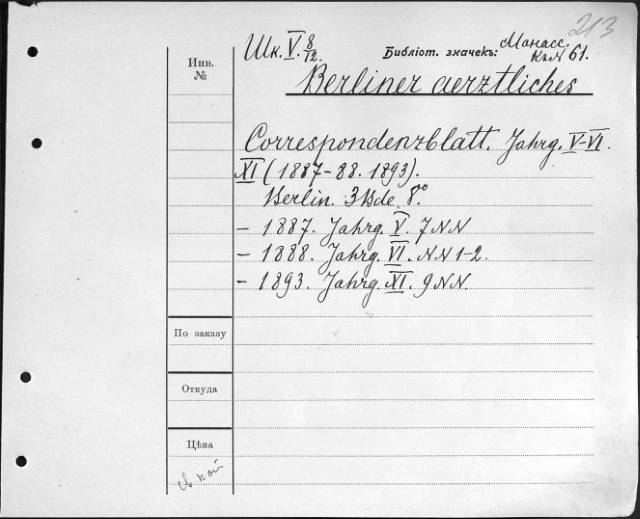 213
Шк. V. 8/12. Библіот. значекъ: Манасс.
Инв. № К. N 61.
Berliner aerztliches
Correspondenzblatt. Jahrg. V-VI.
XI (1887-88. 1893).
Berlin. 3 Bde. 8°
- 1887. Jahrg. V. 7 NN
- 1888. Jahrg. VI. NN 1-2.
- 1893. Jahrg. XI. 9 NN.
По заказу
Откуда
Цѣна